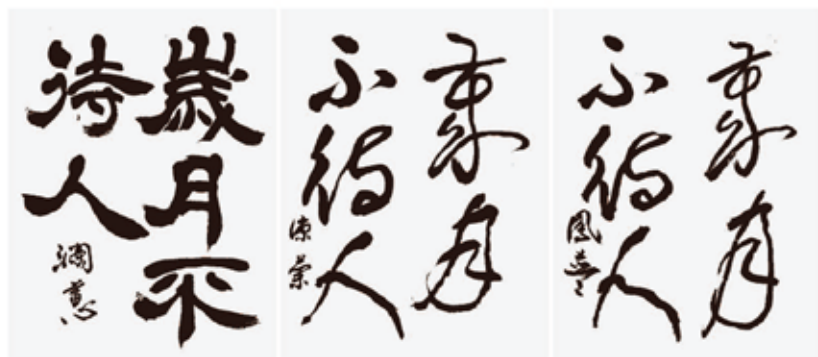 歳月不
待人
歳月
不待人
歳月
不待人